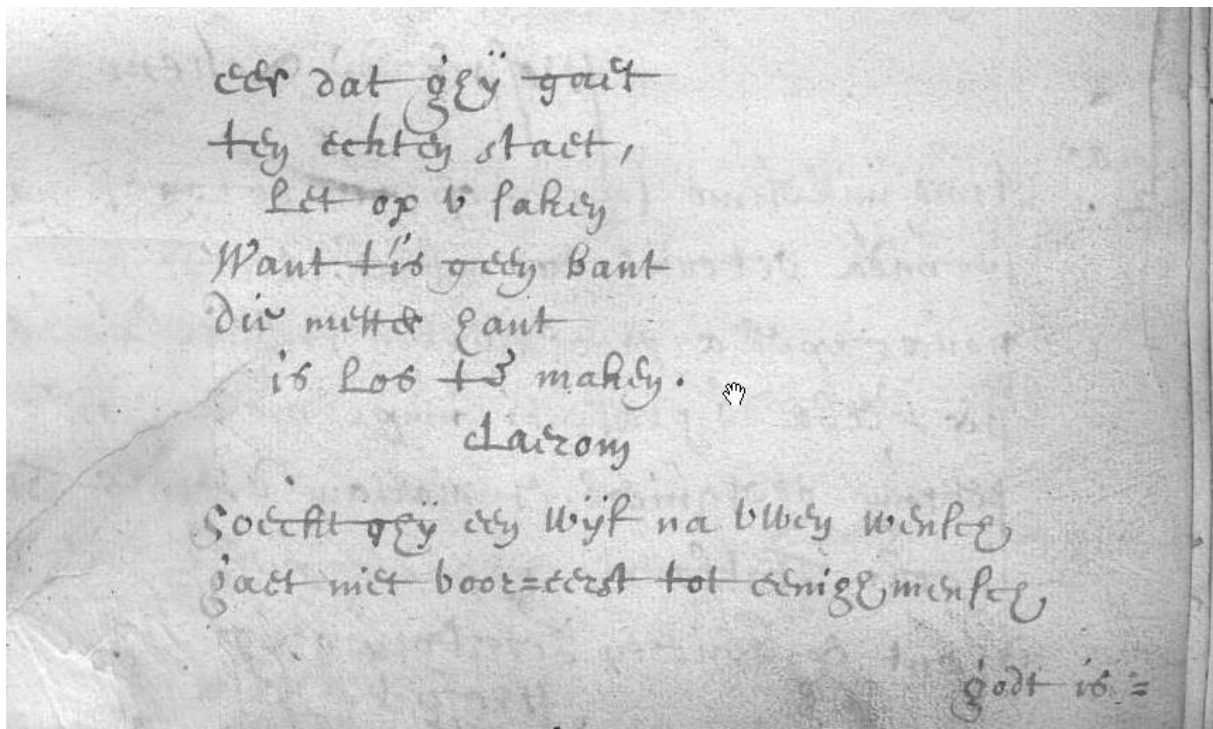 eer dat ghÿ gaet
ten echten staet,
Let op v saken
Want t'is geen bant
die mette hant
is Los te maken.
daerom
Soeckt ghÿ een wÿf na vwen wensch
gaet niet voor=eerst tot eenigh mensch
godt is=